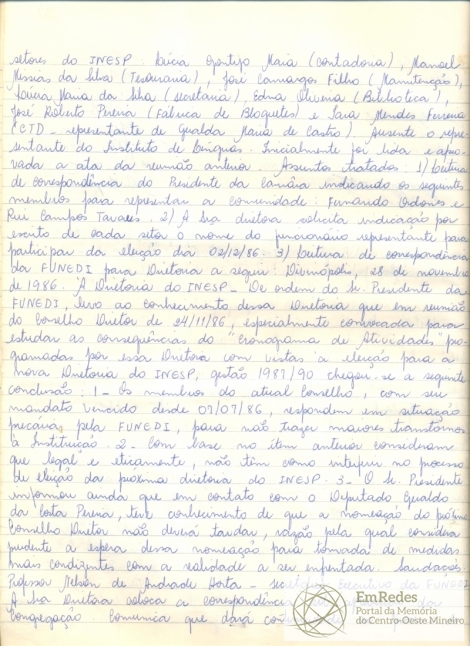 setores do INESP: Lúcia Gontijo Maia (Contadoria), Manoel
Messias da Silva (Tesouraria), José Camargos Filho (Manutenção),
Maria da Silva (secretaria), Edna Oliveira (Biblioteca),
José Roberto Pereira (Fábrica de Bloquetes) e Iara Mendes Ferreira
(CTD - representante de Geralda Maria de Castro). Ausente o repre-
sentante do Instituto de Pesquisas. Inicialmente foi lida e apro-
vada a ata da reunião anterior. Assuntos tratados: 1) leitura
de correspondência do Presidente da Câmara indicando os seguintes
membros para representar a comunidade: Fernando Ordones e
Rui Campos Tavares. 2) A Sra diretora solicita indicação por
escrito de cada setor o nome do funcionário representante para
participar da eleição dia 02/12/86. 3) leitura de correspondência
da FUNEDI para Diretoria a seguir: Divinópolis, 28 de novembro
de 1986. À Diretoria do INESP - De ordem do Sr. Presidente da
FUNEDI, levo ao conhecimento dessa Diretoria que em reunião
do Conselho Diretor de 24/11/86, especialmente convocada para
estudar as consequências do "Cronograma de Atividades" pro-
gramadas por essa Diretoria com vistas à eleição para a
nova Diretoria do INESP, gestão 1987/90 chegou-se a seguinte
conclusão: 1 - Os membros do atual Conselho, com seu
mandato vencido desde 07/07/86, respondem em situação
precária pela FUNEDI, para não trazer maiores transtornos
à Instituição. 2 - Com base no item anterior consideram
que legal e eticamente, não têm como interferir no processo
de eleição da próxima diretoria do INESP. 3 - O Sr. Presidente
informou ainda que em contato com o Deputado Geraldo
da Costa Pereira, teve conhecimento de que a nomeação do próximo
Conselho Diretor não deverá tardar, razão pela qual considera
prudente a espera dessa nomeação para tomada de medidas
mais condizentes com a realidade a ser enfrentada. Saudações.
Professor Nelson de Andrade Horta - Secretário Executivo da FUNEDI
A Sra Diretora coloca a correspondência
Congregação. Comunica que dará
EmRedes
Portal da Memória
do Centro-Oeste Mineiro